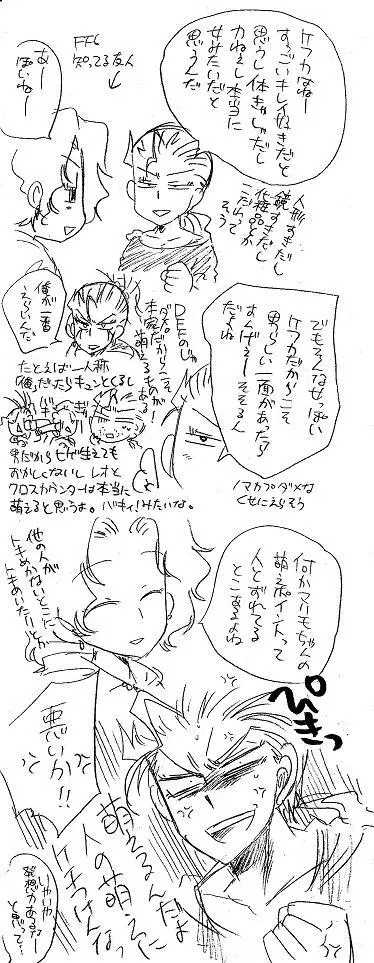 ケフカはねー
すっごいキレイ好きだと
思うし体きゃしゃだし
力ねぇし本当に
女みたいだと
思うんだ
FF6
知ってる友人
あー
ぽいねー
人形すきだし
鏡すきだし
化粧品とか
こだわって
そう
でもそんな女っぽい
ケフカだからこそ
男らしい一面があったら
すんげぇーそそるん
だよね
DFFのじゃ
ダメ。
本家だからこそ
萌えるものが
ある!
俺が一番
えらいんだ
たとえば一人称
俺だったらキュンとくるし
男だからヒゲ生えても
おかしくないし レオと
クロスカウンターは本当に
萌えると思うよ。バキィ!みたいな。
ノマカプダメな
くせにえらそう
何かマリモちゃんの
萌えポイントって
人とずれてる
とこあるよね
他の人が
トキめかないとこに
トキめいたりとか
ぴきっ
悪いか!!
萌えるんだよ
人の萌えに
ケチつけんなっ
いやいや
発想力あるなー
と思って…